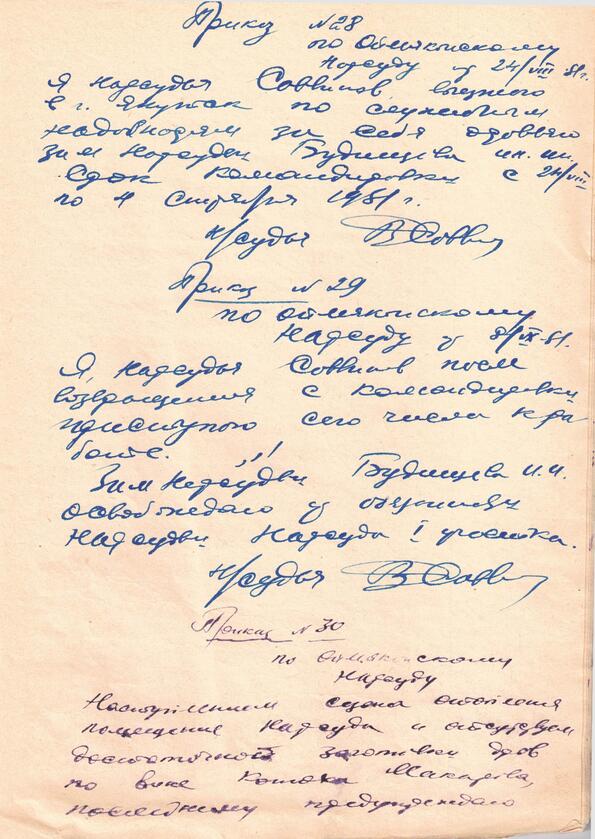 Приказ №28
по Оймяконскому
Нарсуду от 24/VIII 81г.
Я нарсудья Саввинов, выезжаю
в г. Якутск по служебным
надобностям за себя оставляю
зам нарсудьи Будищева ин. ин.
Срок командировки с 24/VIII
по 4 сентября 1981 г.
Н/судья В Савви
Приказ №29
по Оймяконскому
Нарсуду от 81.
Я, нарсудья Саввинов после
возвращения с командировки
приступаю сего числа к ра
боте.
Зам нарсудьи Будищева И.И.
освобождаю от обязанных
нарсудьи Нарсуда I участка.
Н/судья В Савви
Приказ №30
по Оймяконскому
Нарсуду
Наступлением сезона отопления
помещение Нарсуда и отсутствием
достаточной заготовки дров
по вине Макарова,
последнему предупреждаю